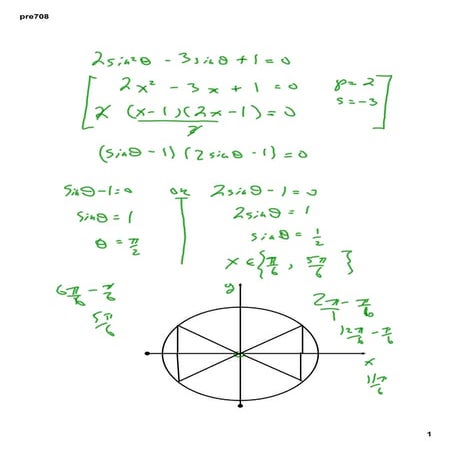 pre708
2sin²θ - 3sinθ + 1 = 0
2x² - 3x + 1 = 0
p = 2
s = -3
(x-1)(2x-1) = 0
2
(sinθ - 1)(2sinθ - 1) = 0
sinθ - 1 = 0 or 2sinθ - 1 = 0
sinθ = 1
2sinθ = 1
θ = π/2
sinθ = 1/2
x ∈ {π/6, 5π/6}
6π/6 - π/6
5π/6
y
2π/1 - π/6
12π/6 - π/6
x
11π/6
1